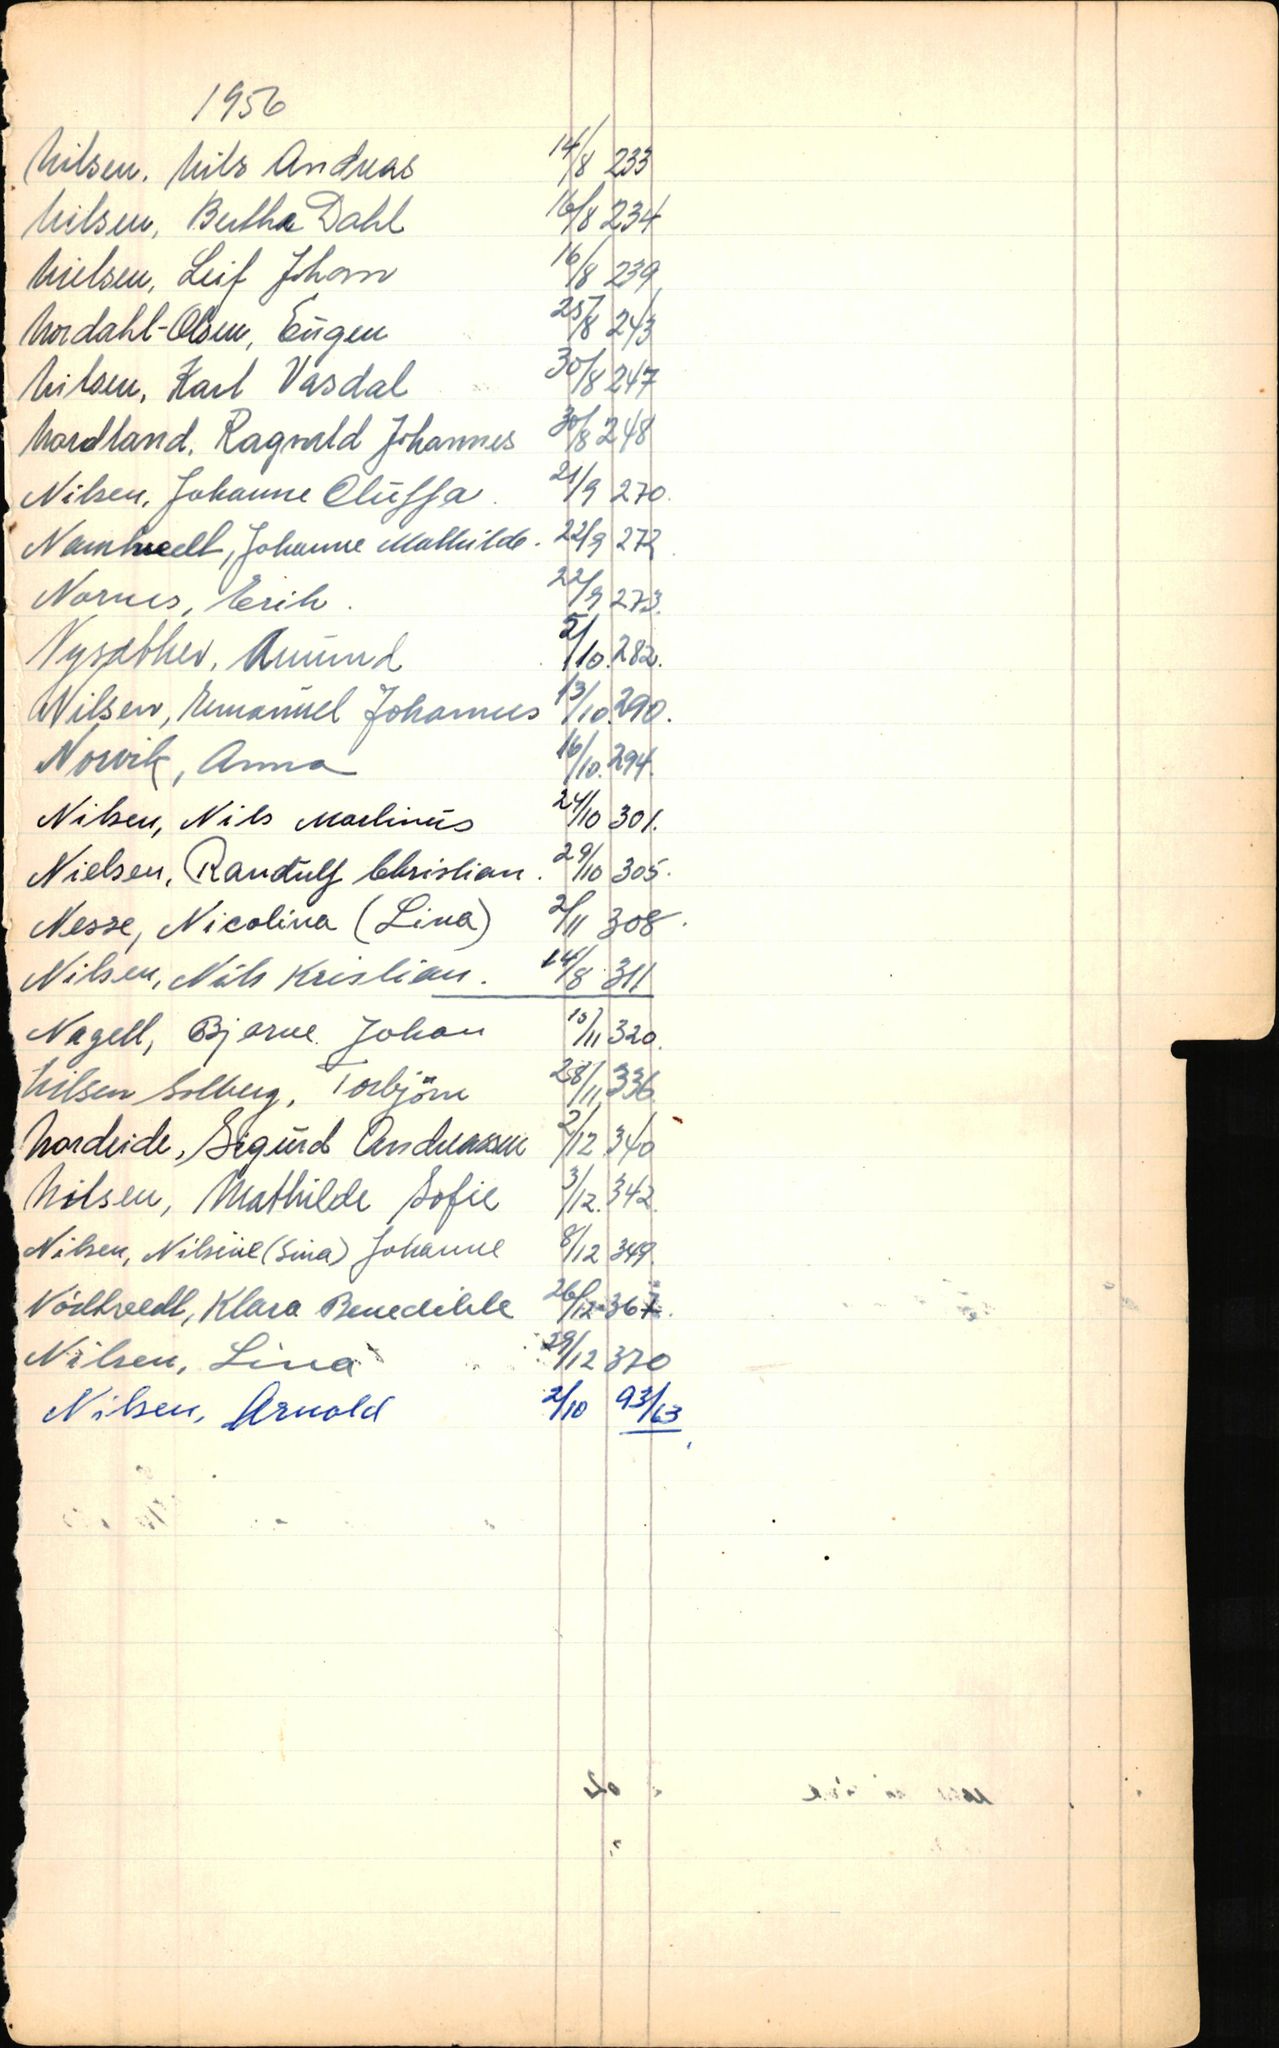 1956
Nilsen, Nils Andreas 14/8 233
Nilsen, Bertha Dahl 16/8 234
Nielsen, Leif Johan 16/8 239
Nordahl-Olsen, Eugen 25/8 243
Nilsen, Karl Vasdal 30/8 247
Nordland, Ragnvald Johannes 30/8 248
Nilsen, Johanne Oluffa 21/9 270.
Namtvedt, Johanne Mathilde. 22/9 272
Nornes, Erik. 22/9 273.
Nysæther, Amund 5/10. 282.
Nilsen, Emanuel Johannes 13/10. 290.
Norvik, Anna 16/10. 294.
Nilsen, Nils Martinus 24/10 301.
Nielsen, Randulf Christian. 29/10 305.
Nesse, Nicolina (Lina) 2/11 308.
Nilsen, Nils Kristian. 14/8 311
Nagell, Bjarne Johan 15/11 320.
Nilsen Solberg, Torbjörn 28/11 336
Nordeide, Sigurd Andreassen 2/12 340
Nilsen, Mathilde Sofie 3/12. 342.
Nilsen, Nilsine (Sina) Johanne 8/12 349.
Nödtvedt, Klara Benedikte 26/12 367.
Nilsen, Lina 29/12 370
Nilsen, Arnold 2/10 93/63